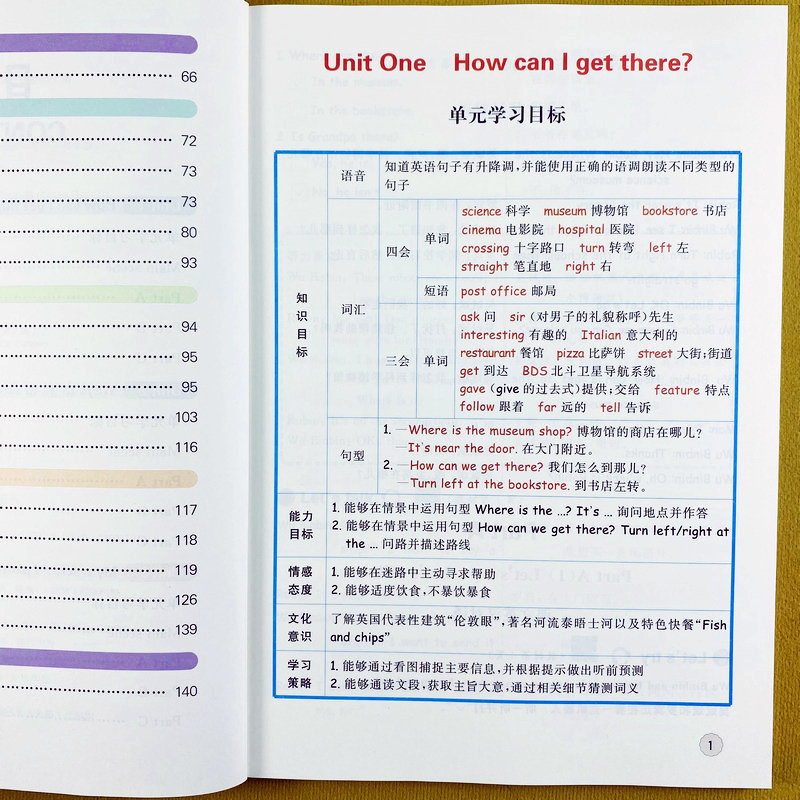 66
72
73
73
80
93
94
95
95
103
116
117
118
119
126
139
140
Unit One How can I get there?
单元学习目标
知识目标
语音
知道英语句子有升降调,并能使用正确的语调朗读不同类型的
句子
词汇
四会
单词
science 科学 museum 博物馆 bookstore 书店
cinema 电影院 hospital 医院
crossing 十字路口 turn 转弯 left 左
straight 笔直地 right 右
短语
post office 邮局
三会
单词
ask 问 sir (对男子的礼貌称呼)先生
interesting 有趣的 Italian 意大利的
restaurant 餐馆 pizza 比萨饼 street 大街;街道
get 到达 BDS 北斗卫星导航系统
gave (give 的过去式)提供;交给 feature 特点
follow 跟着 far 远的 tell 告诉
句型
1. —Where is the museum shop? 博物馆的商店在哪儿?
—It's near the door. 在大门附近。
2. —How can we get there? 我们怎么到那儿?
—Turn left at the bookstore. 到书店左转。
能力
目标
1. 能够在情景中运用句型 Where is the …? It's … 询问地点并作答
2. 能够在情景中运用句型 How can we get there? Turn left/right at
the … 问路并描述路线
情感
态度
1. 能够在迷路中主动寻求帮助
2. 能够适度饮食,不暴饮暴食
文化
意识
了解英国代表性建筑“伦敦眼”,著名河流泰晤士河以及特色快餐“Fish
and chips”
学习
策略
1. 能够通过看图捕捉主要信息,并根据提示做出听前预测
2. 能够通读文段,获取主旨大意,通过相关细节猜测词义
1